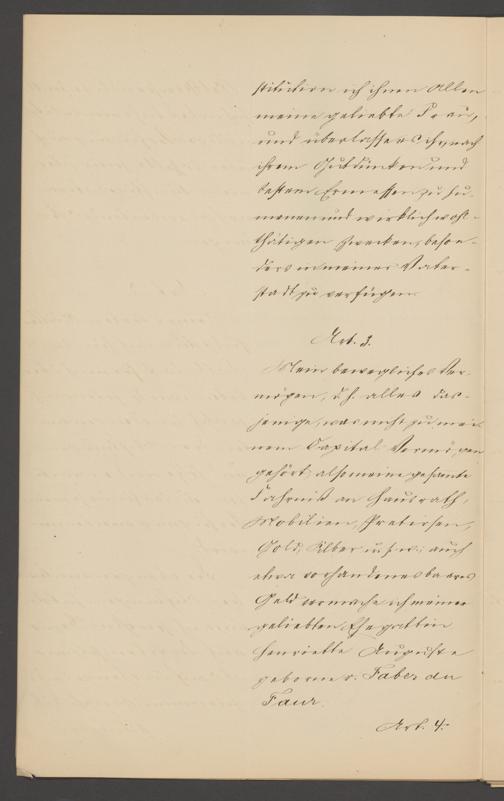 stitution ich ihnen Allen
meine geliebte Frau,
und überlasse es ihr, nach
ihrem Gutdünken und
bestem Ermessen zu hu-
manen und wirklich wohl-
thätigen Zwecken, beson-
ders in meiner Vater-
stadt zu verfügen.
Art. 3.
Mein bewegliches Ver-
mögen, d. h. alles das-
jenige, was nicht zu mei-
nem Capital Vermögen
gehört, also meine gesamte
Fahrniß an Hausrath,
Mobilien, Pretiosen,
Gold, Silber u. s. w., auch
etwa vorhandenes baares
Geld vermache ich meiner
geliebten Ehegattin
Henriette Auguste
geborne v. Faber du
Faur.
Art. 4.